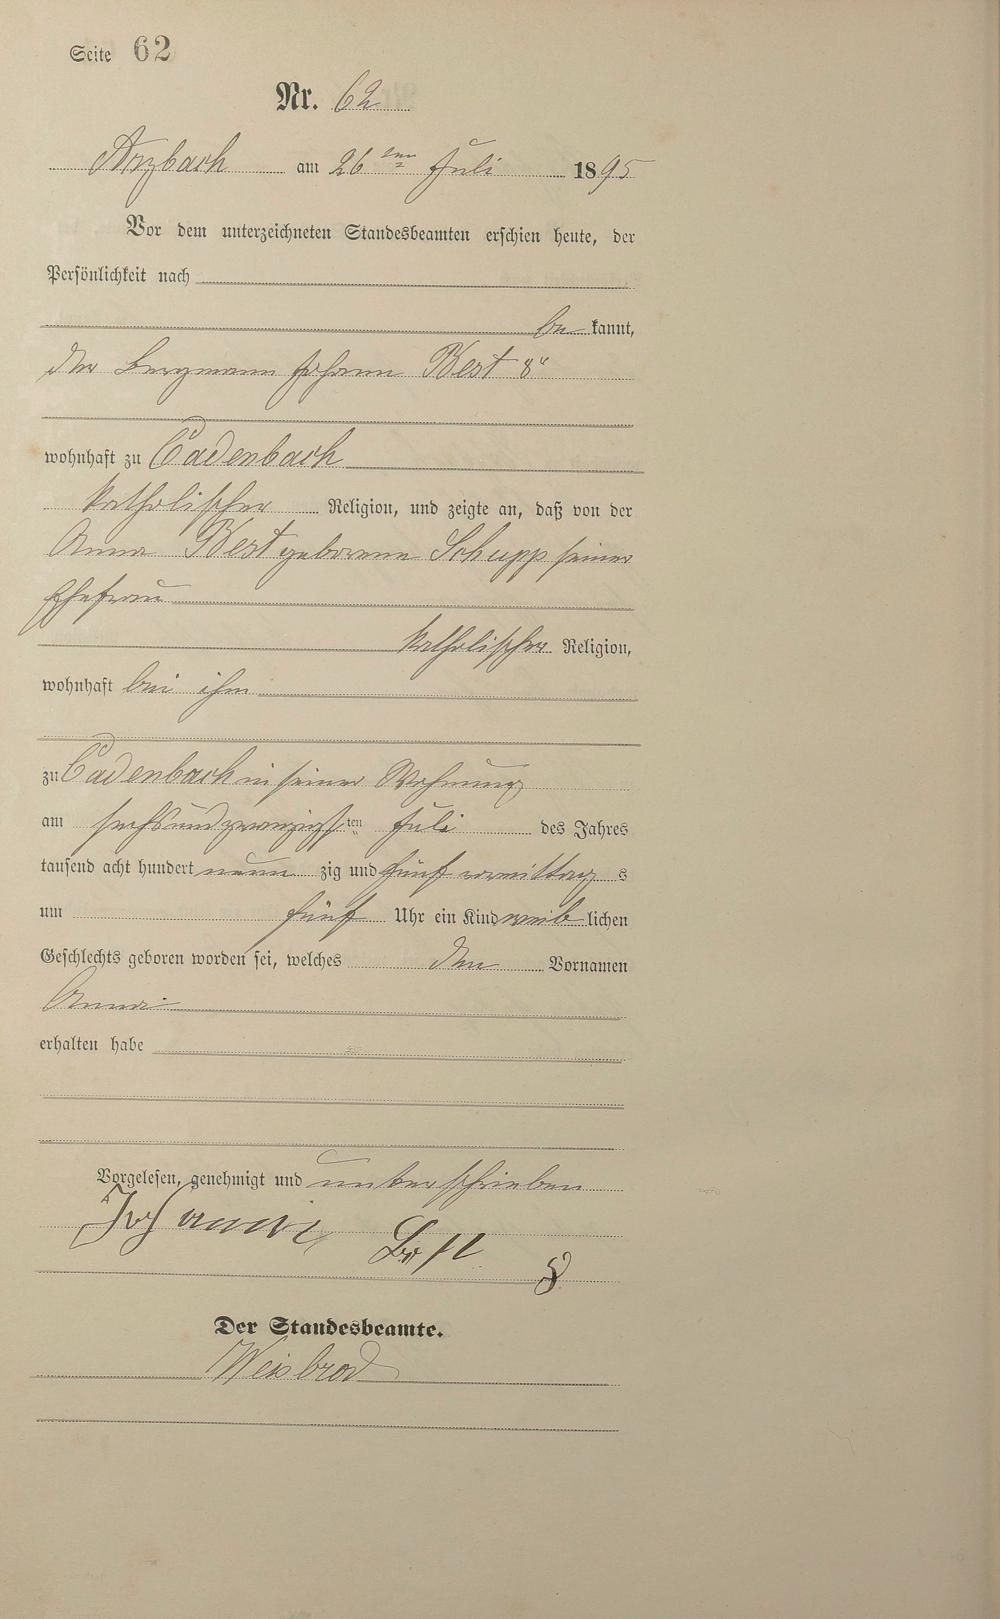 Seite 62
Nr. 62
Arzbach am 26ten Juli 1895
Vor dem unterzeichneten Standesbeamten erschien heute, der
Persönlichkeit nach
be kannt,
der Bergmann Johann Best 8"
wohnhaft zu Cadenbach
katholischer Religion, und zeigte an, daß von der
Anna Best geborene Schupp seiner
Ehefrau
katholischer Religion,
wohnhaft bei ihm
zu Cadenbach in seiner Wohnung
am sechsundzwanzigsten Juli des Jahres
tausend acht hundert neun zig und fünf vormittag s
um fünf Uhr ein Kind weib lichen
Geschlechts geboren worden sei, welches den Vornamen
Anna
erhalten habe
Vorgelesen, genehmigt und unterschrieben
Johann Best 8
Der Standesbeamte.
Weisbrod